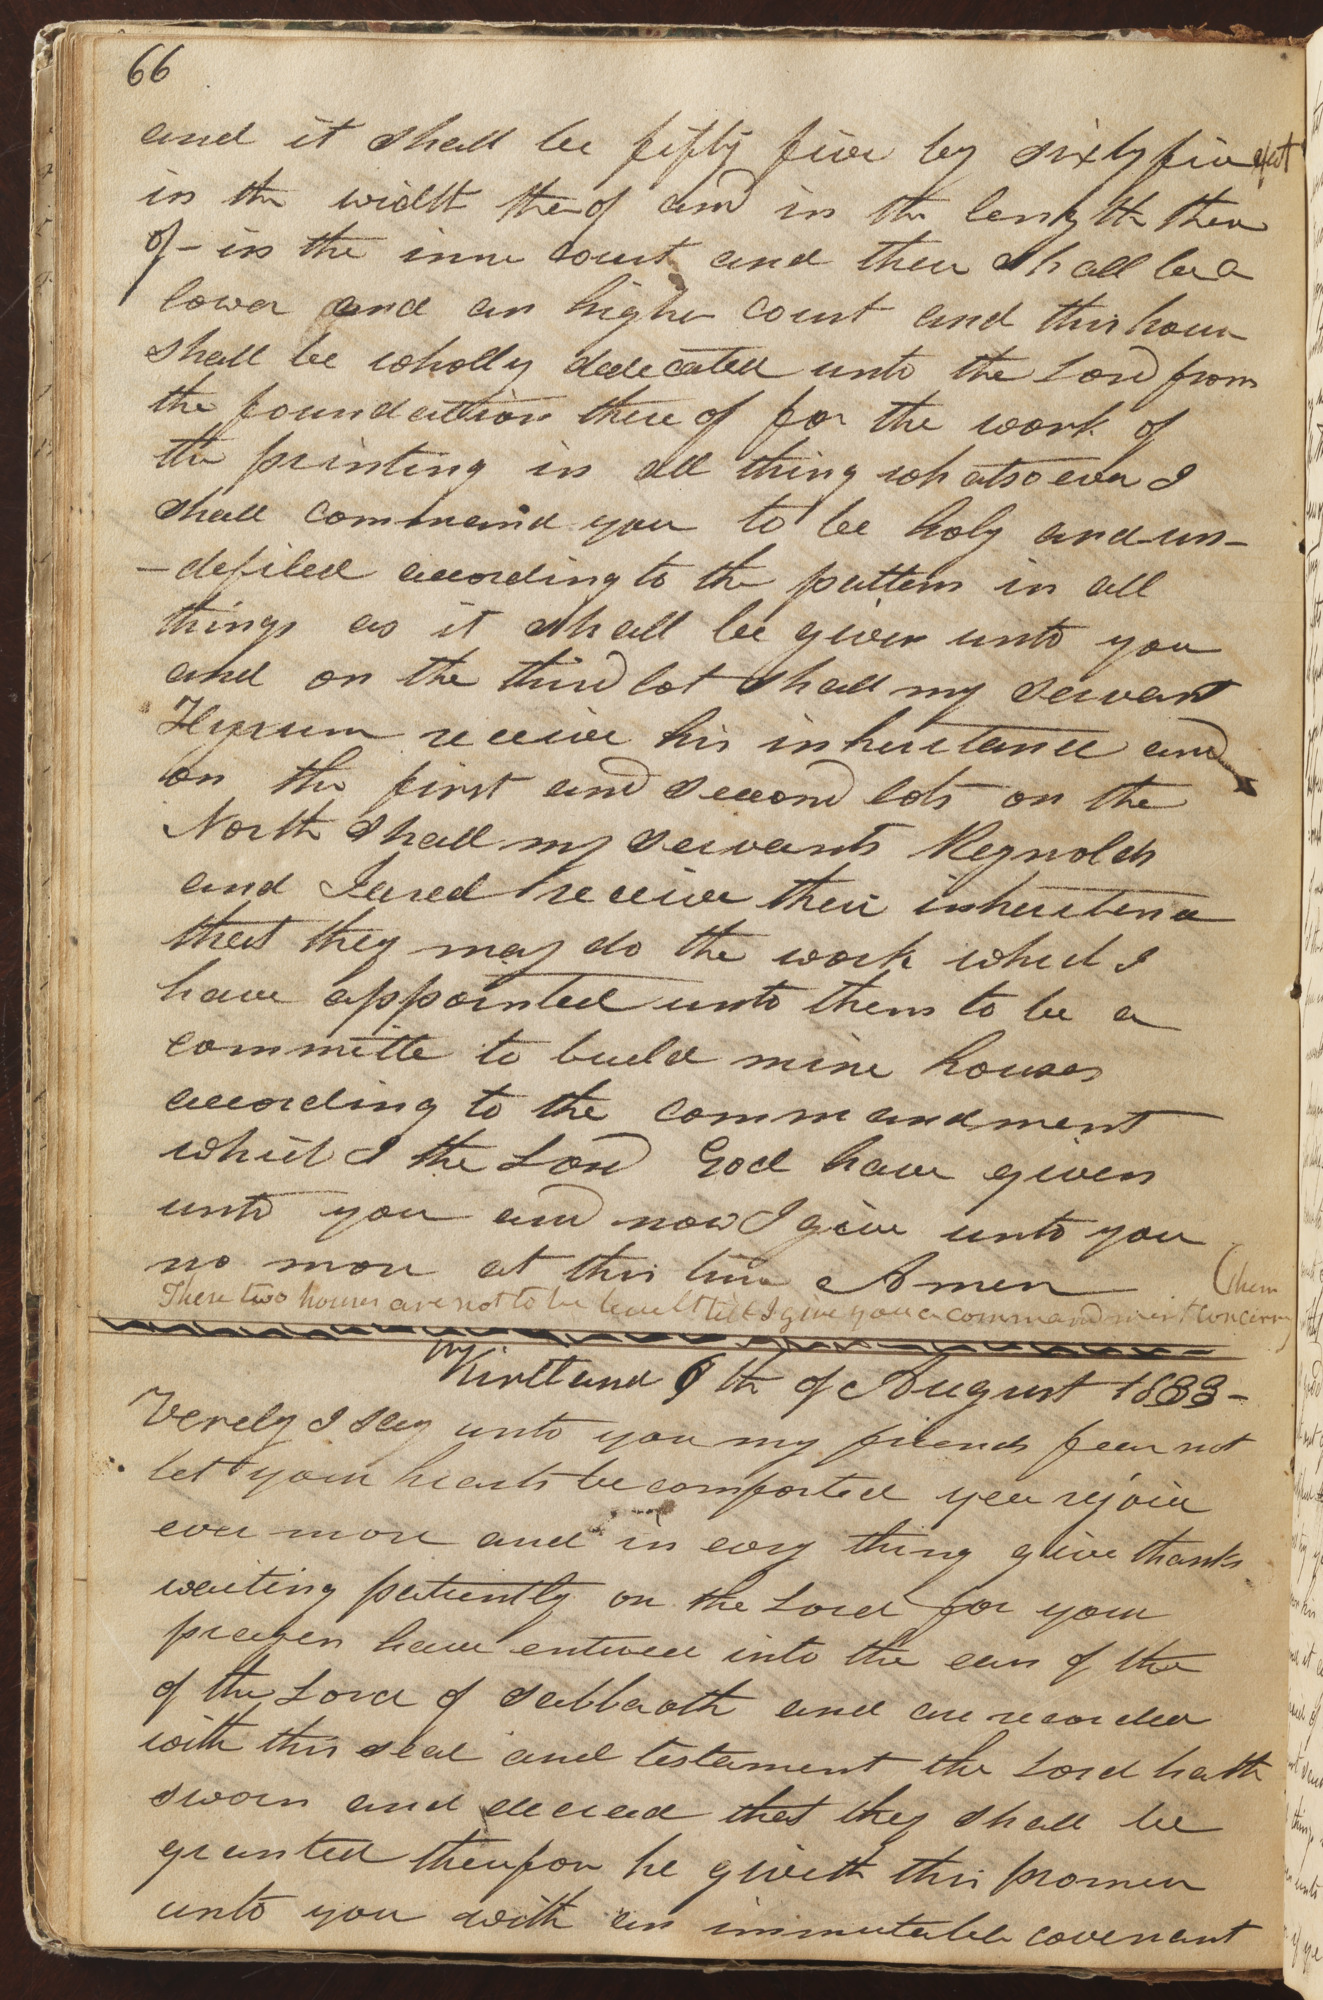 66
and it shall be fifty five by sixty five feet
in the width theof and in the length there
of - in the inner court and there shall be a
lower and an higher court and this house
shall be wholly dedicated unto the Lord from
the foundation there of for the work of
the printing in all thing whatsoever I
shall command you to be holy and un-
-defiled according to the pattern in all
things as it shall be given unto you
and on the third lot shall my servant
Hyrum receive his inheritance and
on the first and second lots on the
North shall my servants Reynolds
and Jared receive their inheritence
that they may do the work which I
have appointed unto them to be a
committe to build mine houses
according to the commandment
which I the Lord God have given
unto you and now I give unto you
no more at this time Amen
(them
These two houses are not to be built till I give you a commandment concerning
Kirtland 6th of August 1833-
Verely I say unto you my friends fear not
let your hearts be comforted yea rejoice
ever more and in evry thing give thanks
waiting patiently on the Lord for your
prayers have entered into the ears of the
of the Lord of Sabbaoth and are recorded
with this seal and testament the Lord hath
sworn and decreed that they shall be
granted therefore he giveth this promise
unto you with an immutable covenant